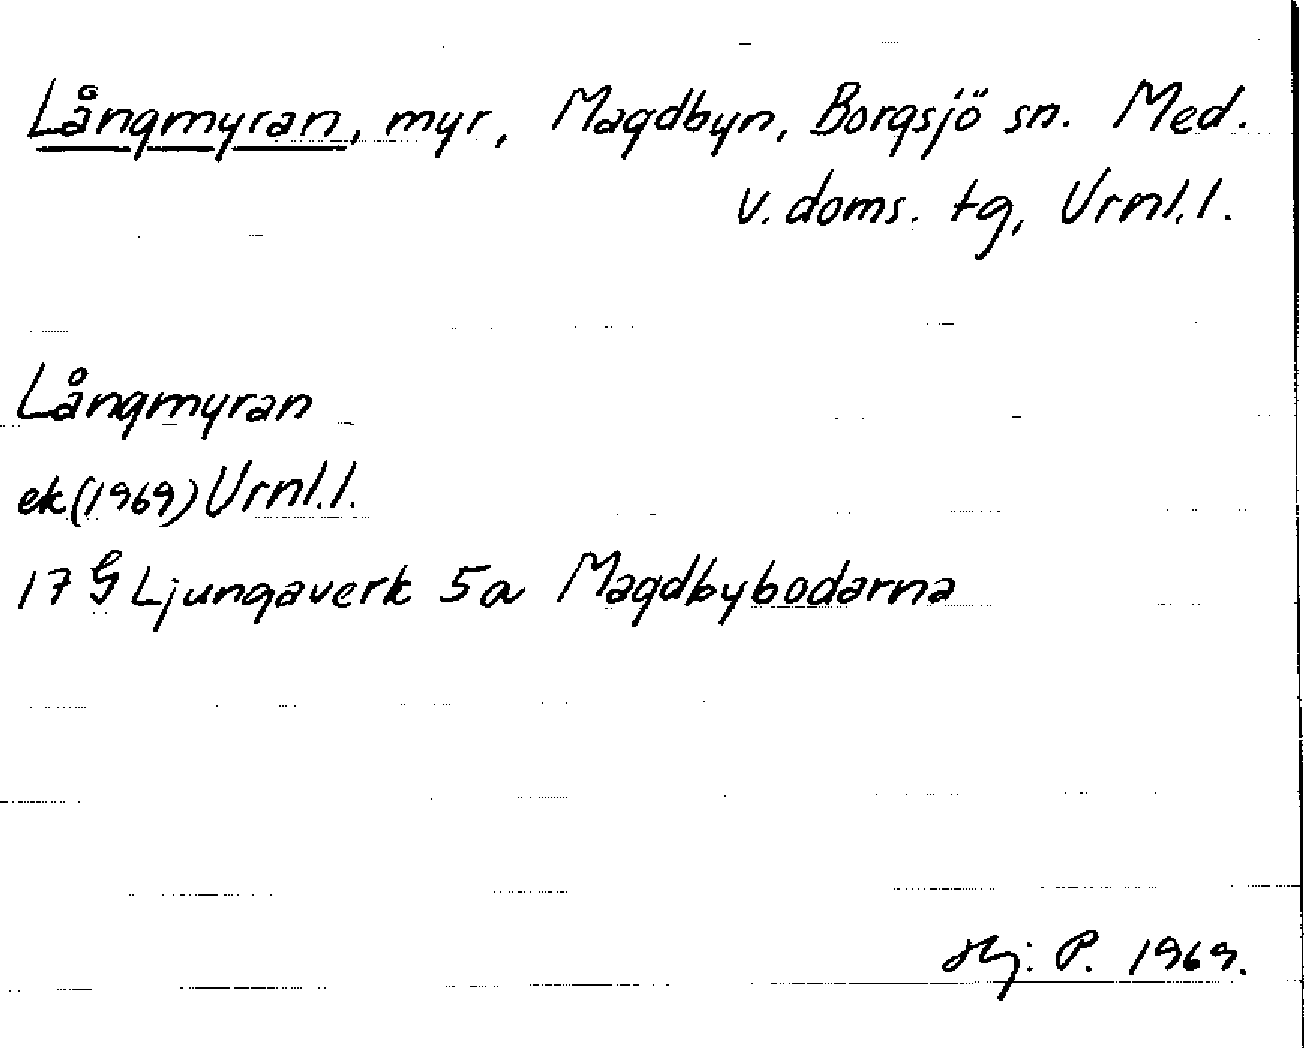 Långmyran, myr, Magdbyn, Borgsjö sn. Med.
V. doms. tg, Vrnl.l.
Långmyran
ek(1969)Vrnl.l.
17 G Ljungaverk 5a Magdbybodarna
Hj. P. 1969.